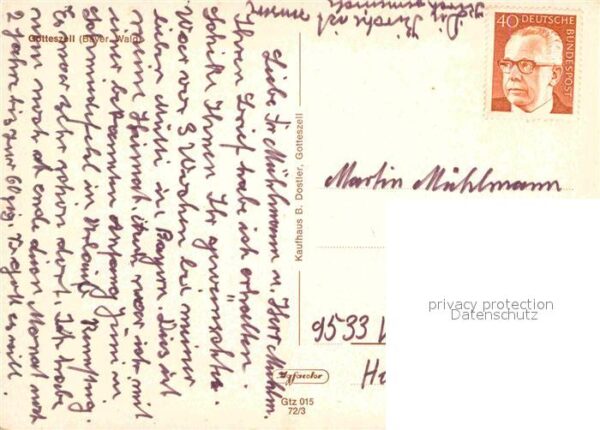 Gotteszell (Bayer. Wald)
Liebe Fr Mühlmann u. Herr Mühlm.
Ihren Brief habe ich erhalten.
Schicke Ihnen Ihr gewünschtes.
War vor 3 Wochen bei meiner
lieben Mutti in Bayern Dies ist
meine Heimat. Auch war ich mit
mir bekannten Anfang Juni in
in Urlaub
Es war sehr schön dort. Ich habe
nun noch ab end diesen Monat noch
2 Jahre bis zur 60
Kaufhaus B. Dostler, Gotteszell
40 DEUTSCHE BUNDESPOST
Martin Mühlmann
9533
privacy protection
Datenschutz
Gtz 015
72/3